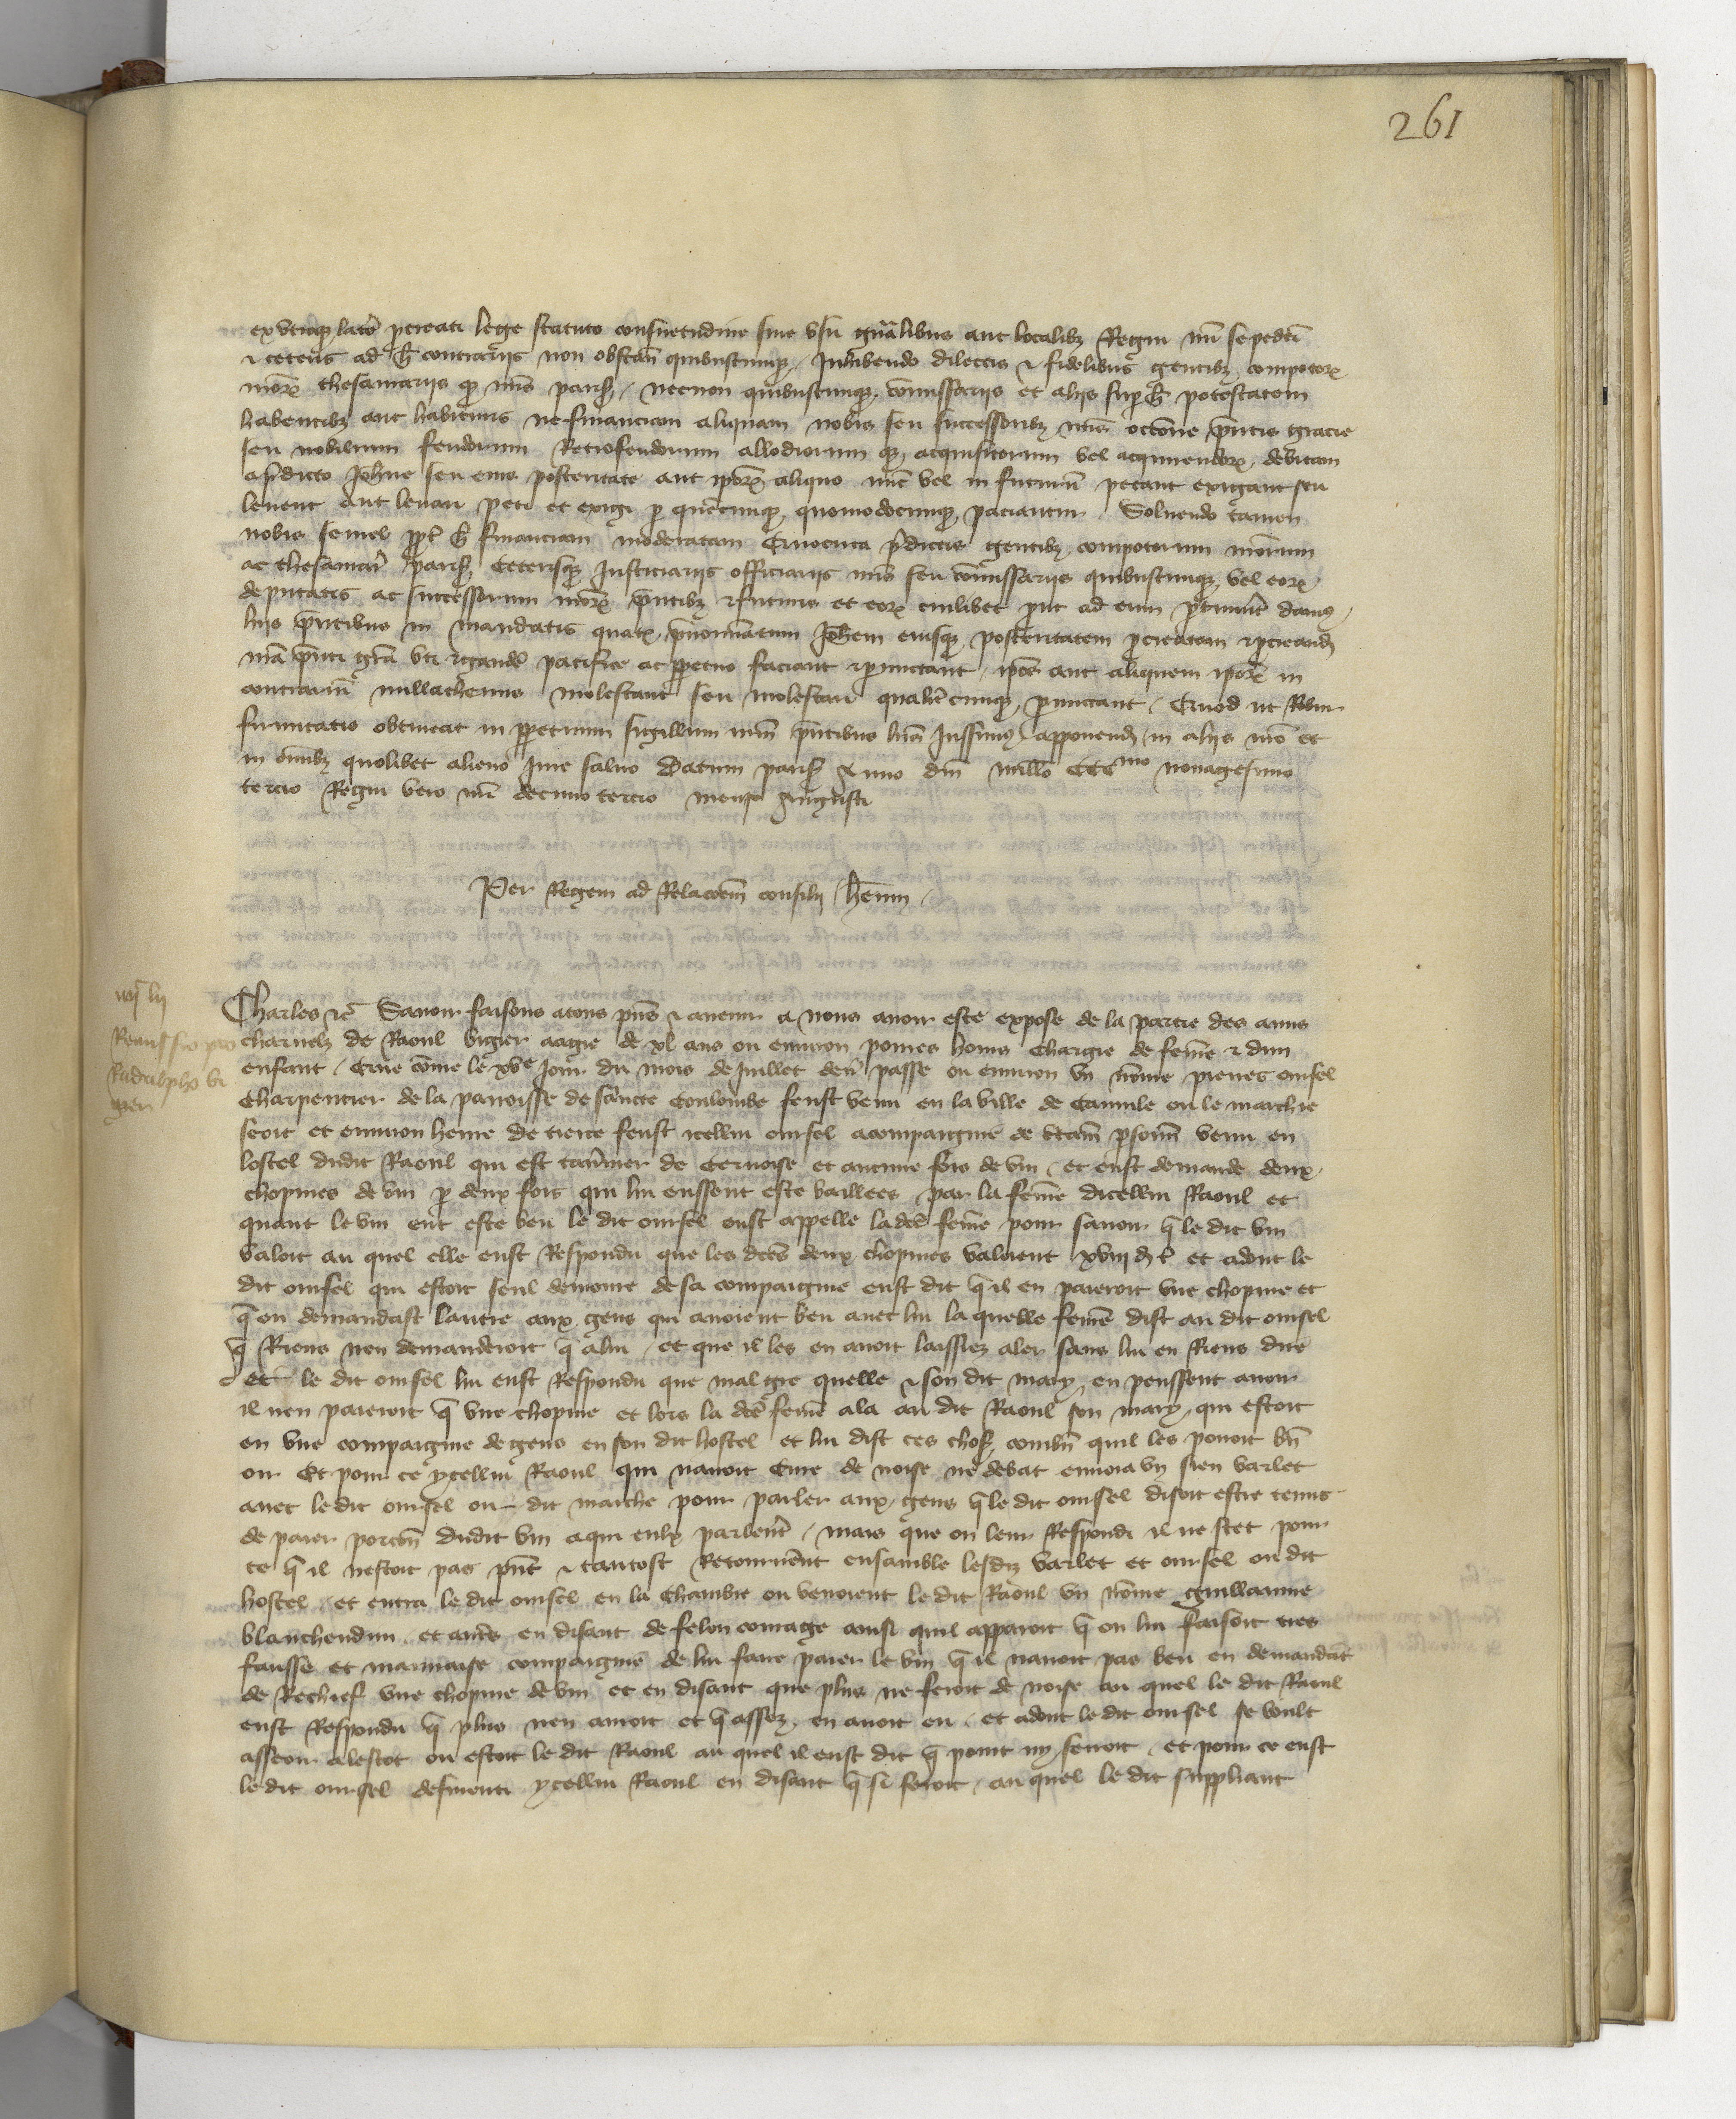 261
ex utroque latere procreati lege statuto consuetudine sive usu generalibus aut localibus Regni nostri sepedicti
et ceteris ad hoc contrariis non obstantibus quibuscumque Inhibendo dilectis et fidelibus gentibus compotorum
nostrorum thesaurariisque nostris parisius necnon quibuscumque commissariis et aliis super hoc potestatem
habentibus aut habituris ne financiam aliquam nobis seu successoribus nostris occasione presentis gracie
seu nobilium feudorum Retrofeudorum allodiorum que acquisitorum vel acquirendorum debitam
a predicto Johanne seu eius posteritate aut ipsorum aliquo nunc vel in futurum petant exigant seu
levent aut levari peti et exigi per quemcumque quomodocumque paciantur Solvendo tamen
nobis semel propter hoc financiam moderatam Quocirca predictis gentibus compotorum nostrorum
ac thesaurariis parisius Ceterisque Justiciariis officiariis nostris seu commissariis quibuscumque vel eorum
deputatis ac successorum nostrorum presentibus et futuris et eorum cuilibet prout ad eum pertinuerit damus
hiis presentibus in mandatis quatinus prenominatum Johannem eiusque posteritatem procreatam et procreandam
nostra presenti gratia uti et gaudere pacifice ac perpetuo faciant et permittant ipsos aut aliquem ipsorum in
contrarium nullathenus molestant seu molestari qualitercumque permittant Quod ut Robur
firmitatis obtineat in perpetuum sigillum nostrum presentibus litteris Jussimus apponendum in aliis nostro et
in omnibus quolibet alieno jure salvo Datum parisius Anno domini millesimo CCCmo nonagesimo
tercio Regni vero nostri decimo tercio mense Augusti
Per Regem ad Relacionem consilii henry
Charles etc Savoir faisons a tous presens et avenir a nous avoir este expose de la partie des amis
charnelz de Raoul vigier aagie de xl ans ou environ povres homs Chargie de femme et dun
enfant Que comme le xve jour du mois de juillet dernier passe ou environ un nomme pierres oursel
Charpentier de la parroisse de saincte Coulombe feust venu en la ville de Caurule ou le marchie
seoit et environ heure de tierce feust icellui oursel acompaignie de certaines personnes venu en
lostel dudit Raoul qui est tavernier de Cervoise et aucune fois de vin et eust demande deux
chopines de vin par deux fois qui lui eussent este baillees par la femme dicellui Raoul et
quant le vin eut este beu le dit oursel eust appelle la dicte femme pour savoir que le dit vin
valoit au quel elle eust Respondu que les dictes deux chopines valoient xviij d t et adont le
dit oursel qui estoit seul demoure de sa compaignie eust dit que il en paieroit une chopine et
que on demandast lautre aux gens qui avoient beu avec lui la quelle femme dist au dit oursel
que Riens nen demanderoit que a lui et que il les en avoit laissiez aler sans lui en Riens dire
et le dit oursel lui eust Respondu que mal gre quelle et son dit mary en peussent avoir
il nen paieroit que une chopine et lors la dicte femme ala au dit Raoul son mary qui estoit
en une compaignie de gens en son dit hostel et lui dist ces choses combien quil les povoit bien
oir Et pour ce ycellui Raoul qui navoit Cure de noise ne debat envoia un sien varlet
avec le dit oursel ou dit marche pour parler aux gens que le dit oursel disoit estre tenus
de paier porcion dudit vin a qui eulx parlerent mais que on leur Respondi il ne scet pour
ce que il nestoit pas present et tantost Retournerent ensamble lesdiz varlet et oursel ou dit
hostel et entra le dit oursel en la Chambre ou bevoient le dit Raoul un nomme guillaume
blanchendun et autres en disant de felon courage ainsi quil apparoit que on lui faisoit tres
fausse et mauvaise compaignie de lui faire paier le vin que il navoit pas beu en demandant
de Rechief une chopine de vin et en disant que plus ne feroit de noise au quel le dit Raoul
eust Respondu que plus nen auroit et que assez en avoit eu et adont le dit oursel se voult
asseoir a lescot ou estoit le dit Raoul au quel il eust dit que point ny serroit et pour ce eust
le dit oursel desmenti ycellui Raoul en disant que si feroit au quel le dit suppliant